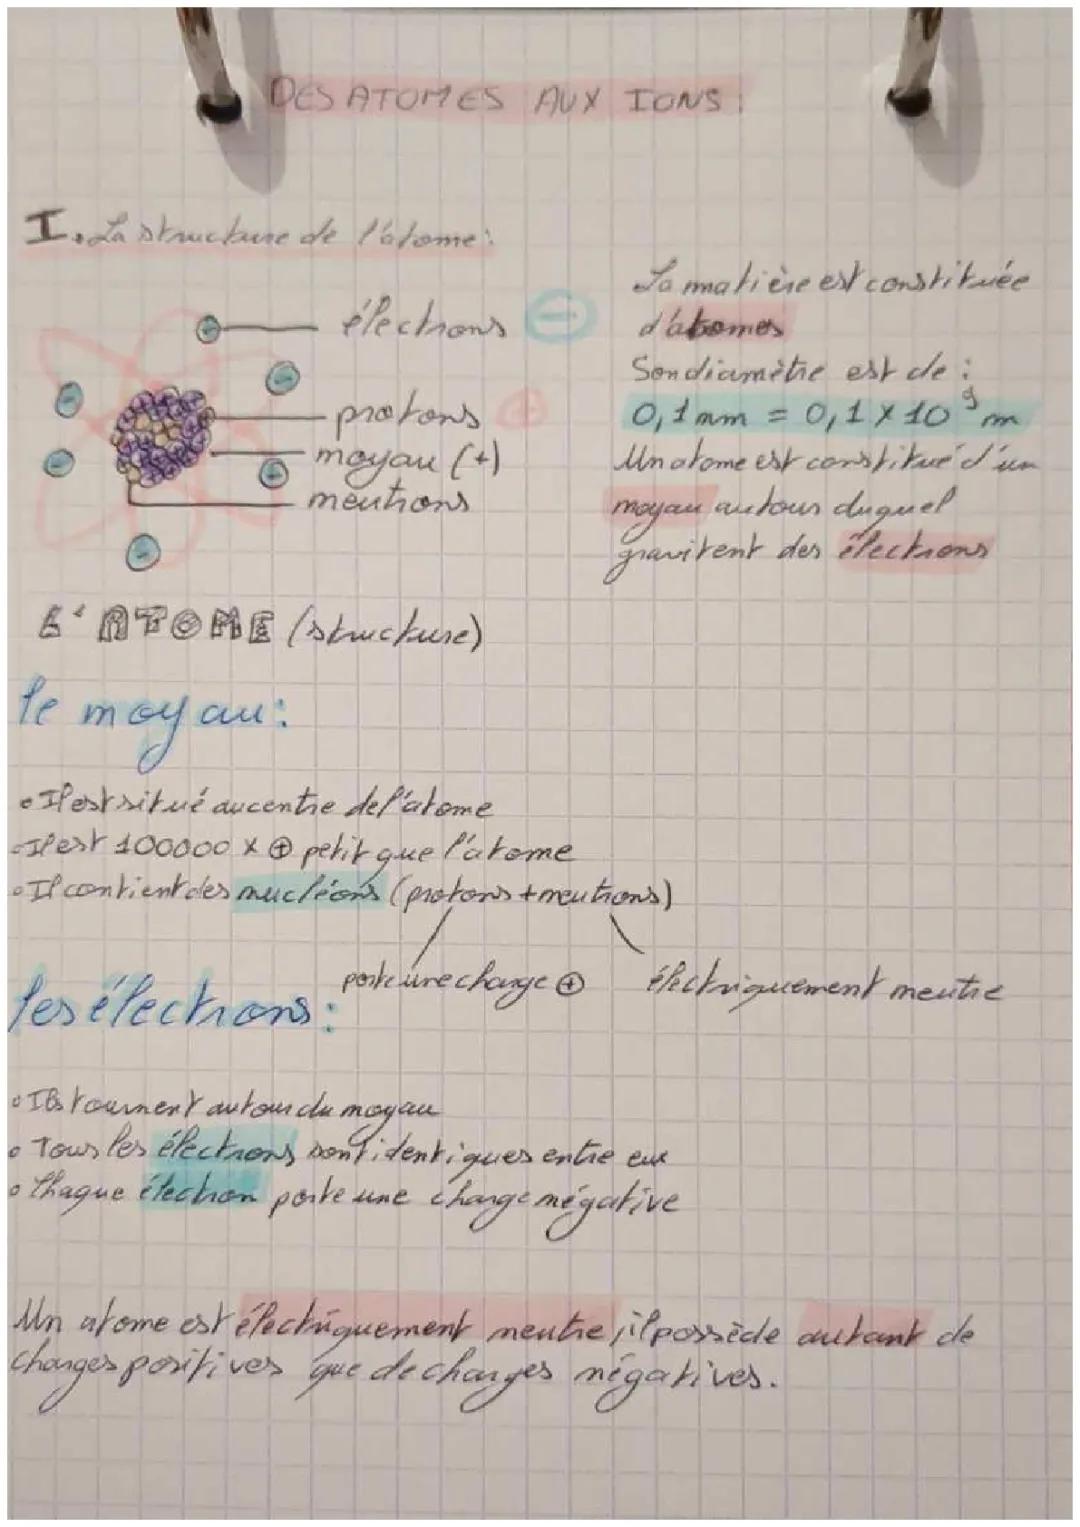 DES ATOMES AUX IONS :
I. La structure de l'atome :
électrons ⊖
protons ⊕
noyau (+)
neutrons
La matière est constituée
d'atomes
Son diamètre est de :
0,1 nm = 0,1 × 10⁹ m
Un atome est constitué d'un
noyau autour duquel
gravitent des électrons
L'ATOME (structure)
le noyau :
• Il est situé au centre de l'atome
• Il est 100000 × ⊕ petit que l'atome
• Il contient des nucléons (protons + neutrons)
porte une charge ⊕ électriquement neutre
les électrons :
• Ils tournent autour du noyau
• Tous les électrons sont identiques entre eux
• Chaque électron porte une charge négative
Un atome est électriquement neutre, il possède autant de
charges positives que de charges négatives.